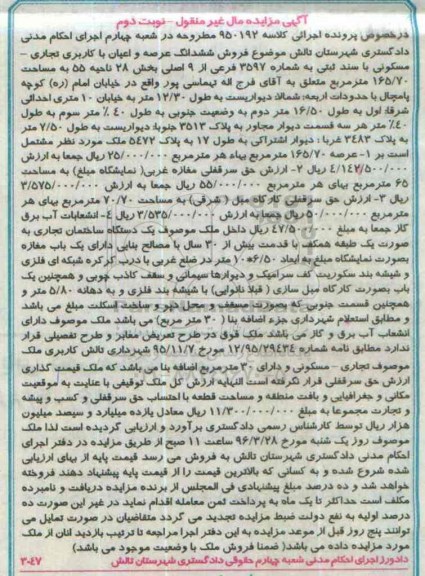 آگهی مزایده مال غیر منقول - نوبت دوم
درخصوص پرونده اجرائی کلاسه ۹۵۰۱۹۲ مطروحه در شعبه چهارم اجرای احکام مدنی
دادگستری شهرستان تالش موضوع فروش ششدانگ عرصه و اعیان با کاربری تجاری -
مسکونی با سند ثبتی به شماره ۳۵۹۷ فرعی از ۹ اصلی بخش ۲۸ ناحیه ۵۵ به مساحت
۱۶۵/۷۰ مترمربع متعلق به آقای فرج اله تهماسی پور واقع در خیابان امام (ره) کوچه
پامچال با حدودات اربعه: شمالا: دیواریست به طول ۱۲/۳۰ متر به خیابان ۱۰ متری احداثی
شرقا: اول به طول ۱۶/۵۰ متر دوم به وضعیت جنوبی به طول ۴۰ ٪ متر سوم به طول
۴۰٪ متر هر سه قسمت دیوار مجاور به پلاک ۳۵۱۳ جنوبا: دیواریست به طول ۷/۵۰ متر
به پلاک ۳۴۸۳ غربا : دیوار اشتراکی به طول ۱۷ به پلاک ۵۴۷۲ ملک مورد نظر مشتمل
است بر ۱- عرصه ۱۶۵/۷۰ مترمربع بهاء هر مترمربع ۲۵/۰۰۰/۰۰۰ ریال جمعا به ارزش
۴/۱۴۲/۵۰۰/۰۰۰ ریال ۲- ارزش حق سرقفلی مغازه غربی( نمایشگاه مبلغ) به مساحت
۶۵ مترمربع بهای هر مترمربع ۵۵/۰۰۰/۰۰۰ ریال جمعا به ارزش ۳/۵۷۵/۰۰۰/۰۰۰
ریال ۳- ارزش حق سرقفلی کارگاه مبل ( شرقی) به مساحت ۷۰/۷۰ مترمربع بهای هر
مترمربع ۵۰/۰۰۰/۰۰۰ ریال جمعا به ارزش ۳/۵۳۵/۰۰۰/۰۰۰ ریال ۴- انشعابات آب برق
گاز جمعا به مبلغ ۴۷/۵۰۰/۰۰۰ ریال داخل ملک موصوف یک دستگاه ساختمان تجاری به
صورت یک طبقه همکف با قدمت بیش از ۳۰ سال با مصالح بنایی دارای یک باب مغازه
بصورت نمایشگاه مبلغ به ابعاد ۶/۵۰*۱۰ متر در ضلع غربی با درب کرکره شبکه ای فلزی
و شیشه بند سکوریت کف سرامیک و دیوارها سیمانی و سقف کاذب چوبی و همچنین یک
باب بصورت کارگاه مبل سازی ( قبلا نانوایی) با شیشه بند فلزی و به دهانه ۵/۸۰ متر و
همچنین قسمت جنوبی که بصورت مسقف و محل دپو و ساخت اسکلت مبلغ می باشد
و مطابق استعلام شهرداری جزء اضافه بنا ( ۳۰ متر مربع) می باشد ملک موصوف دارای
انشعاب آب برق و گاز می باشد ملک فوق در طرح تعریض معابر و طرح تفصیلی قرار
ندارد مطابق نامه شماره ۱۲/۹۵/۲۹۴۳۴ مورخ ۹۵/۱۱/۷ شهرداری تالش کاربری ملک
موصوف تجاری - مسکونی و دارای ۳۰ مترمربع اضافه بنا می باشد که ملک قیمت گذاری
ارزش حق سرقفلی قرار گرفته است النهایه ارزش کل ملک توقیفی با عنایت به موقعیت
مکانی و جغرافیایی و بافت منطقه و مساحت قطعه با احتساب حق سرقفلی و کسب و پیشه
و تجارت مجموعا به مبلغ ۱۱/۳۰۰/۰۰۰/۰۰۰ ریال معادل یازده میلیارد و سیصد میلیون
هزار ریال توسط کارشناس رسمی دادگستری برآورد و ارزیابی گردیده است لذا ملک
موصوف روز یک شنبه مورخ ۹۶/۳/۲۸ ساعت ۱۱ صبح از طریق مزایده در دفتر اجرای
احکام مدنی دادگستری شهرستان تالش به فروش می رسد قیمت پایه از بهای ارزیابی
شده شروع شده و به کسانی که بالاترین قیمت را از قیمت پایه پیشنهاد دهند فروخته
خواهد شد و ده درصد مبلغ پیشنهادی فی المجلس از برنده مزایده دریافت و نامبرده
مکلف است حداکثر تا یک ماه به پرداخت ثمن معامله اقدام نماید در غیر این صورت ده
درصد اولیه به نفع دولت ضبط مزایده تجدید می گردد متقاضیان در صورت تمایل می
توانند پنج روز قبل از موعد مزایده به این دفتر اجرا مراجعه تا ترتیب بازدید انان از ملک
مورد مزایده داده می باشد( ضمنا فروش ملک با وضعیت موجود می باشد)
دادورز اجرای احکام مدنی شعبه چهارم حقوقی دادگستری شهرستان تالش ۳۰۴۷